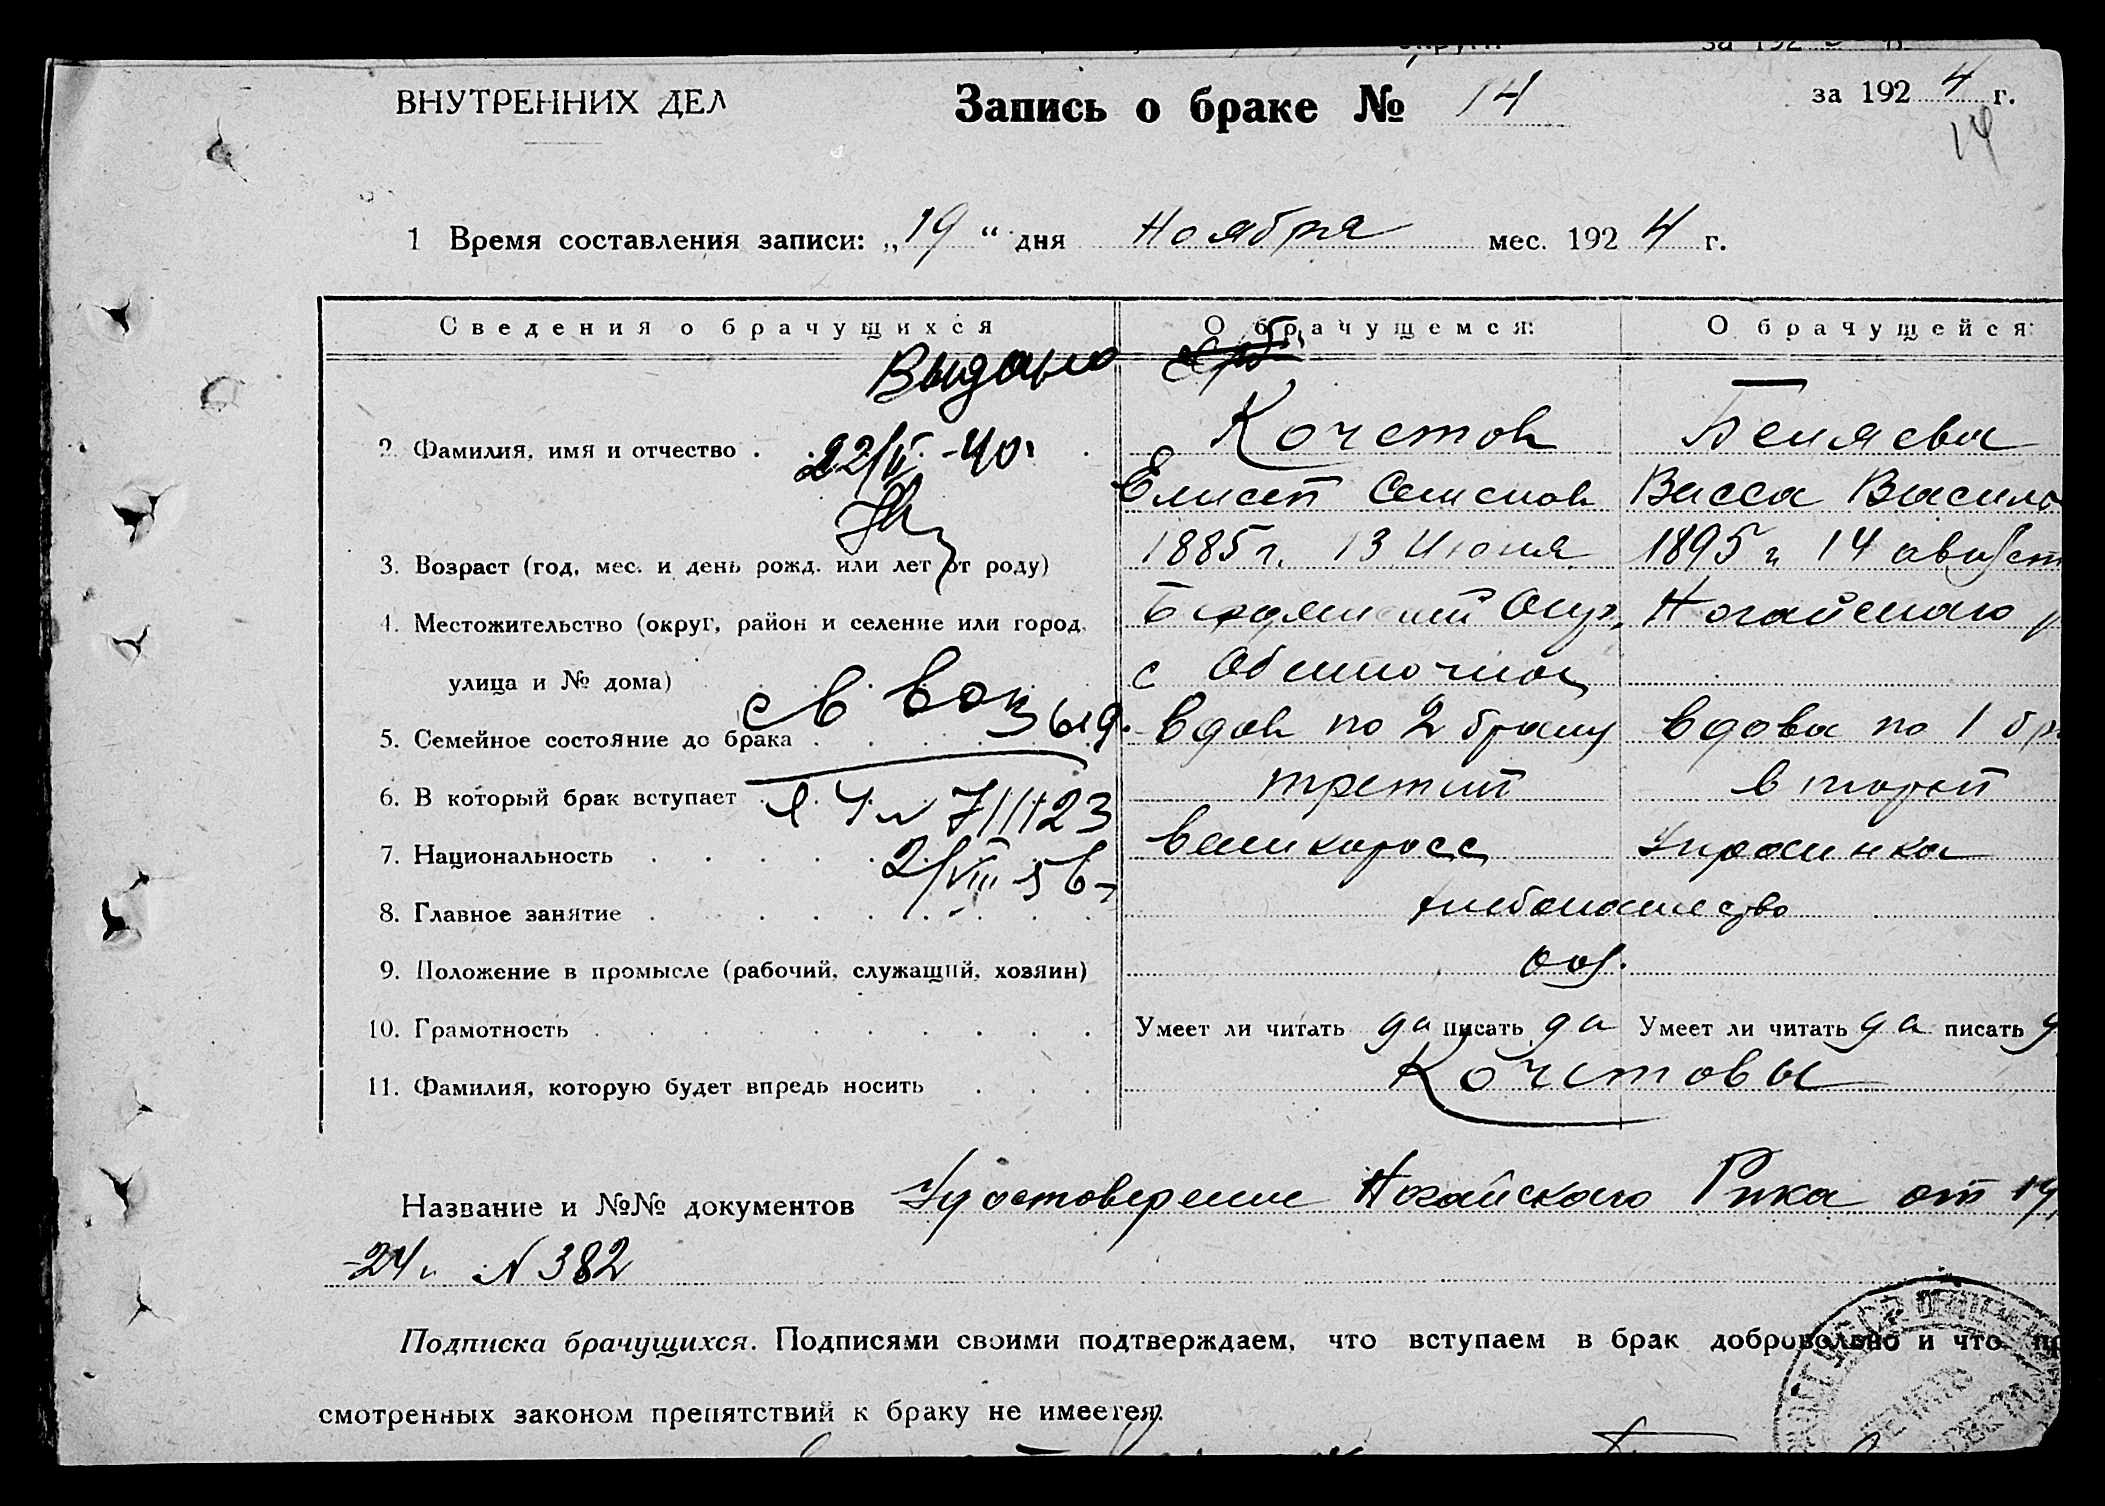 за 192
ВНУТРЕННИХ ДЕЛ Запись о браке № 14 за 1924 г.
14
1 Время составления записи: „19“ дня Ноября мес. 1924 г.
Сведения о брачущихся О брачущемся: О брачущейся:
Выдано
2. Фамилия, имя и отчество Кочетов Беляева
22/V-40г
Елисей Семенов Васса Василь
3. Возраст (год, мес. и день рожд. или лет от роду) 1885 г. 13 Июня 1895 г 14 август
4. Местожительство (округ, район и селение или город, Бердянский Окр. Ногайского р
улица и № дома) с Обиточной
св выд.
5. Семейное состояние до брака вдов по 2 браку вдова по 1 бр
6. В который брак вступает третий второй
7. Национальность великоросс Украинка
2/VIII 56
8. Главное занятие хлебопашество
9. Положение в промысле (рабочий, служащий, хозяин)
10. Грамотность Умеет ли читать да писать да Умеет ли читать да писать д
11. Фамилия, которую будет впредь носить Кочетовы
Название и №№ документов Удостоверение Ногайского Рика от 19
-24г. N 382
Подписка брачущихся. Подписями своими подтверждаем, что вступаем в брак добровольно и что пр
смотренных законом препятствий к браку не имеется.